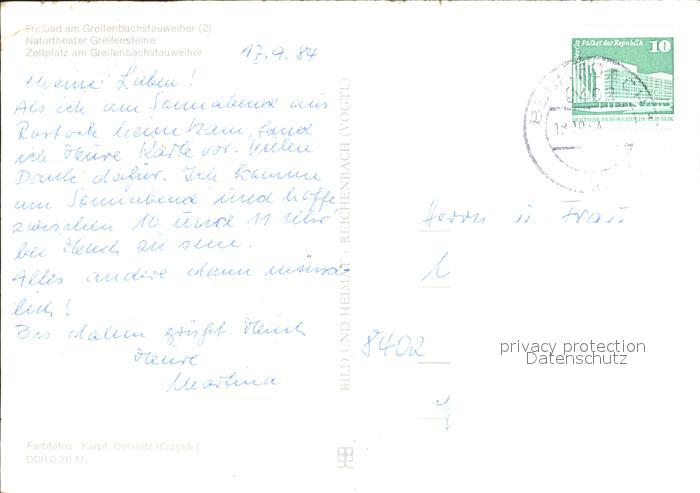 Freibad am Greifenbachstauweiher (2)
Naturtheater Greifensteine
Zeltplatz am Greifenbachstauweiher
17.9.84
Meine Lieben!
Als ich am Sonnabend aus
Rostock heim kam, fand
ich Heure Karte vor. Vielen
Dank dafür. Ich komme
am Sonnabend und hoffe
zwischen 10 und 11 Uhr
bei Heuch zu sein.
Alles andere dann münd-
lich!
Bis dahin grüßt Heuch
Heure
Martina
Farbfotos: Karpf, Oelsnitz (Erzgeb.)
DDR 0,20 M
BILD UND HEIMAT · REICHENBACH (VOGTL)
Berlin Palast der Republik 10
DEUTSCHE DEMOKRATISCHE REPUBLIK
Herrn u. Frau
8402
privacy protection
Datenschutz